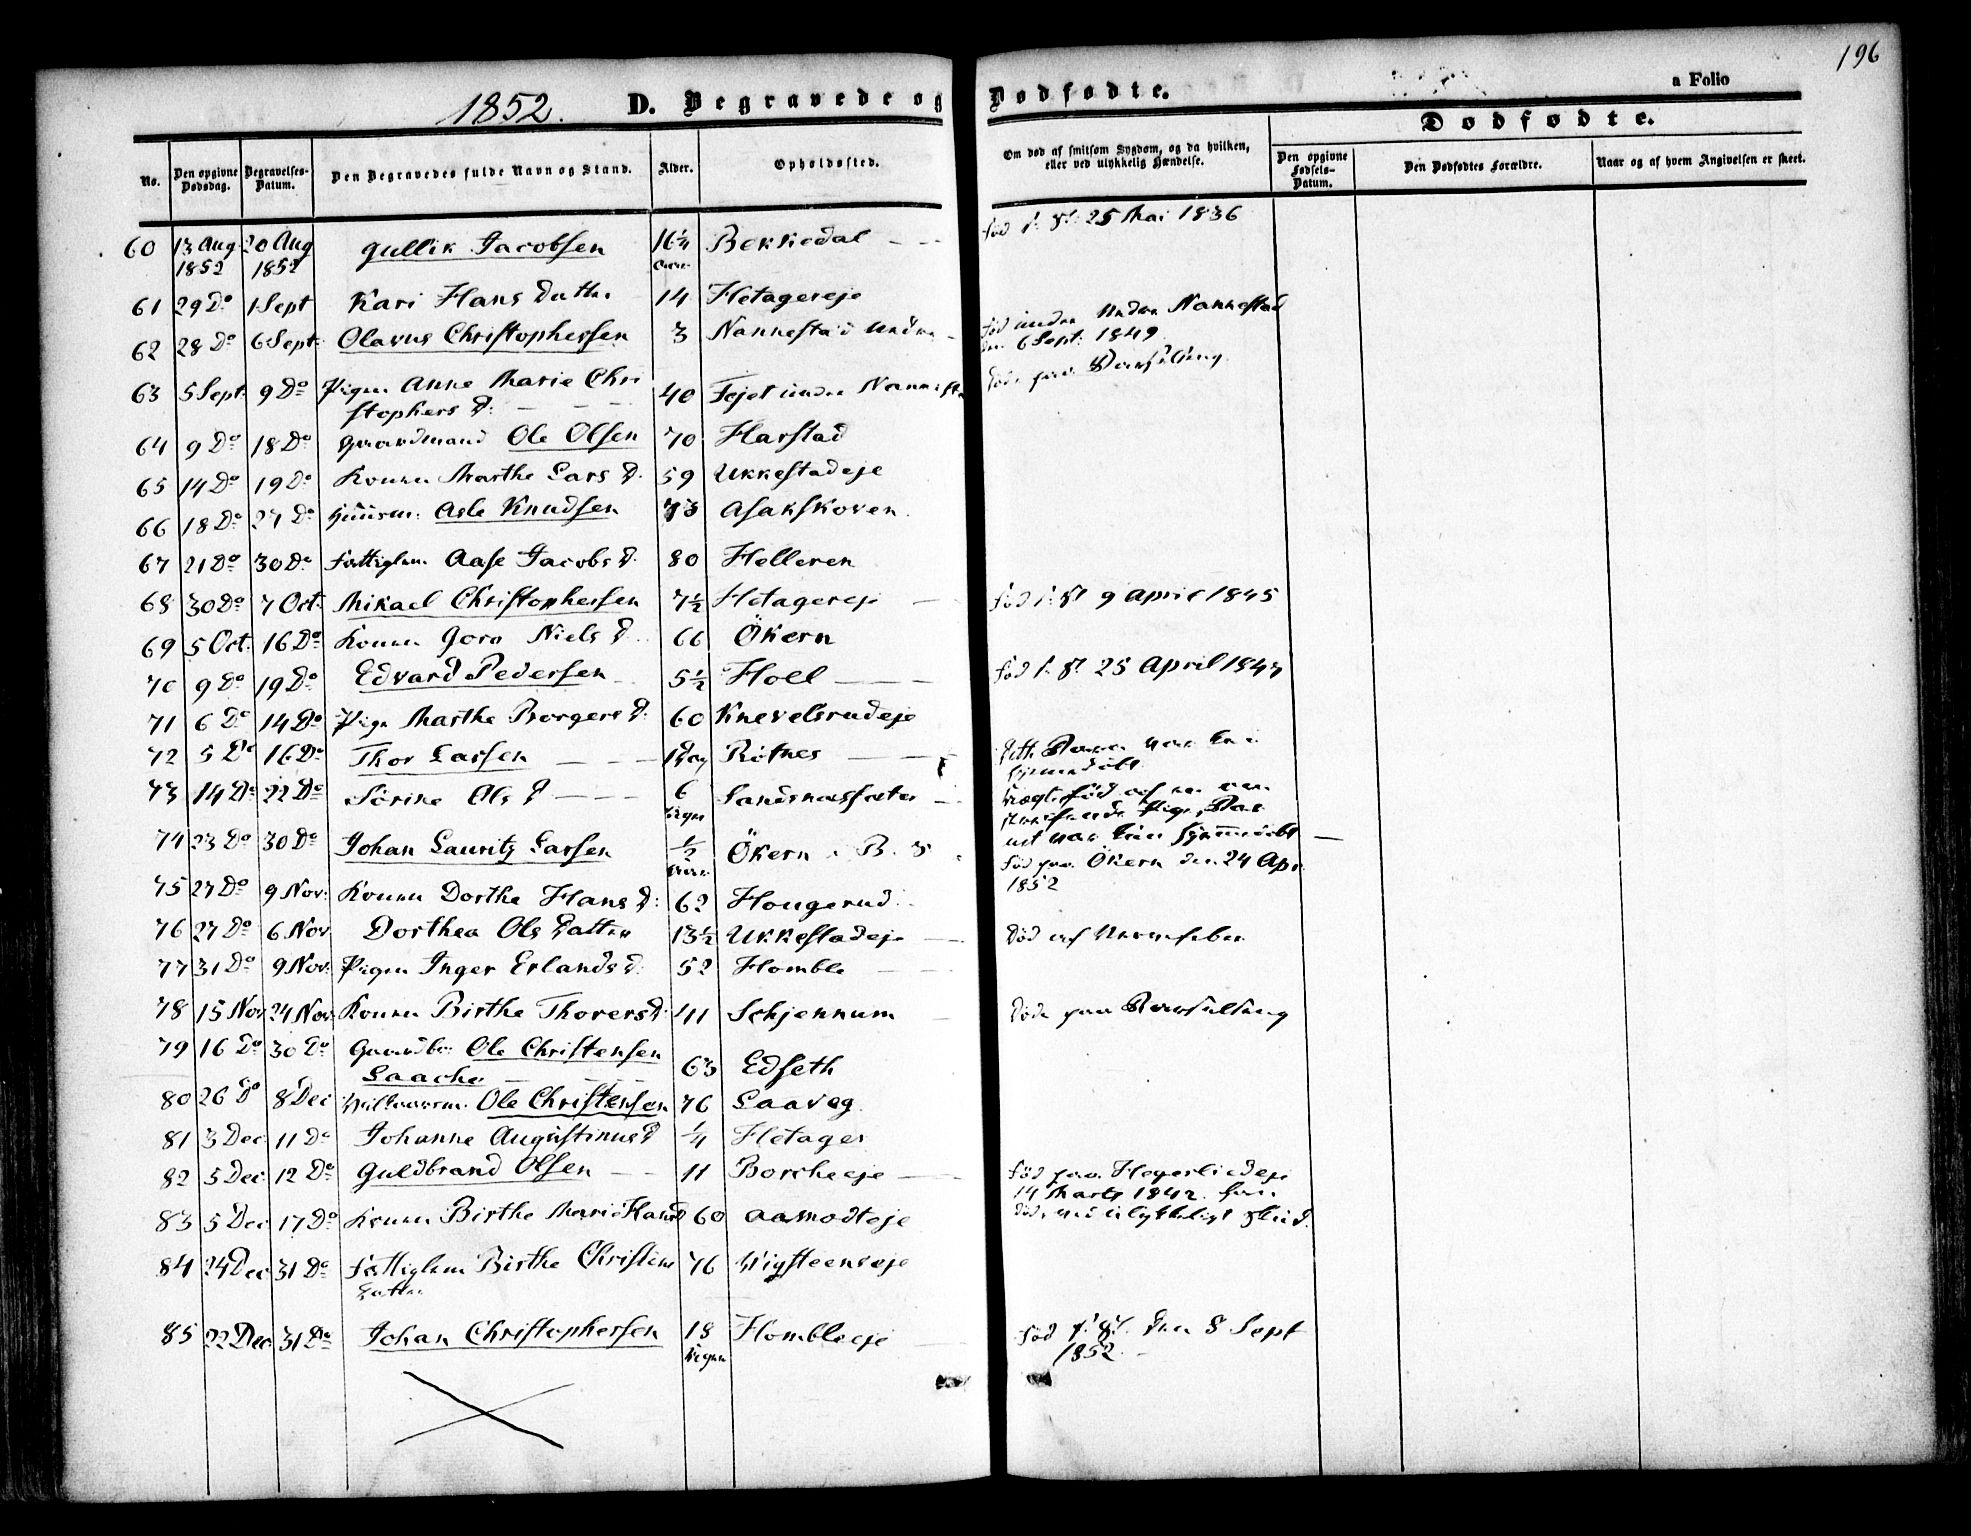 196
1852. D. Begravede og Dødfødte. a Folio
Dødfødte.
No. Den opgivne Dødsdag. Begravelses-Datum. Den Begravedes fulde Navn og Stand. Alder. Opholdssted. Om død af smitsom Sygdom, og da hvilken, eller ved ulykkelig Hændelse. Den opgivne Fødsels-Datum. Den Dødfødtes Forældre. Naar og af hvem Angivelsen er skeet.
60 13 Aug 1852 20 Aug 1852 Gullik Jacobsen 16¼ Bekkedal — født 25 Mai 1836
61 29 Do 1 Sept Kari Hans Datter 14 Hetagereje
62 28 Do 6 Sept: Olavus Christophersen 3 Nannestad under — Nannestad
6 Sept: 1849
63 5 Sept: 9 Do Pigen Anne Marie Chri 40 Under
stophers D: — — — døde paa Barselseng
64 9 Do 18 Do Gaardmand Ole Olsen 70 Harstad
65 14 Do 19 Do Konen Marthe Lars D. 59 Ukkestadeje
66 18 Do 27 Do Huusm: Asle Knudsen 73 Asakskoven
67 21 Do 30 Do Fattiglem Aase Jacobs D. 80 Helleren
68 30 Do 7 Oct: Mikael Christophersen 7½ Hetagereje — 9 April 1845
69 5 Oct: 16 Do Konen Goro Niels D. 66 Økern
70 9 Do 19 Do Edvard Pedersen 5½ Holl — 25 April 1847
71 6 Do 14 Do Pige Marthe Borgers D: 60 Knevelsrudeje
72 5 Do 16 Do Thor Larsen — — 1 Dag Rotnes — Dette Barn var kun
hjemmedøbt
73 14 Do 22 Do Sørine Ols D — — 6 Uger Sandsnæssæter —
74 23 Do 30 Do Johan Lauritz Larsen ½ Økern — født paa Økern den 24 Apr.
1852
75 27 Do 9 Nov: Konen Dorthe Hans D: 62 Hougerud
76 27 Do 6 Nov Dorthea Ols Datter 13½ Ukkestadeje — Død af Nervefeber
77 31 Do 9 Nov: Pigen Inger Erlands D: 52 Homble —
78 15 Nov 24 Nov Konen Birthe Thorers D: 41 Schjennum — Døde paa Barselseng
79 16 Do 30 Do Gaardbr: Ole Christensen 63 Edseth
Laache — — —
80 26 Do 8 Dec Ole Christensen 76 Laaveg
81 3 Dec 11 Do Johanne Augustinus D ¼ Hetager
82 5 Dec: 12 Do Guldbrand Olsen — — 11 Borcheeje — født paa
14 Marts 1842.
83 5 Dec 17 Do Konen Birthe Marie Hans D 60 Aamodteje
84 24 Dec 31 Do Fattiglem Birthe Christens 76
Datter
85 22 Dec 31 Do Johan Christophersen 18 Uger Hombleeje — den 8 Sept
1852. —